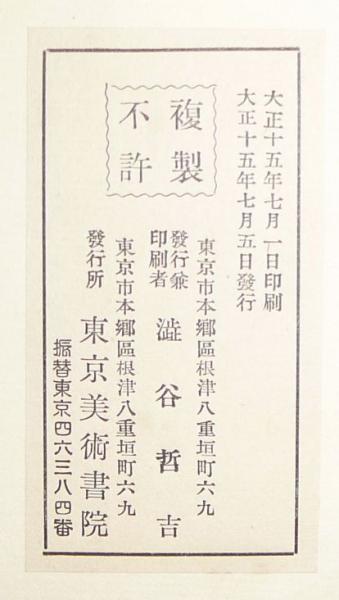 大正十五年七月一日印刷
大正十五年七月五日發行
複製
不許
東京市本鄉區根津八重垣町六九
發行兼
印刷者 澁谷哲吉
東京市本鄉區根津八重垣町六九
發行所 東京美術書院
振替東京四六三八四番